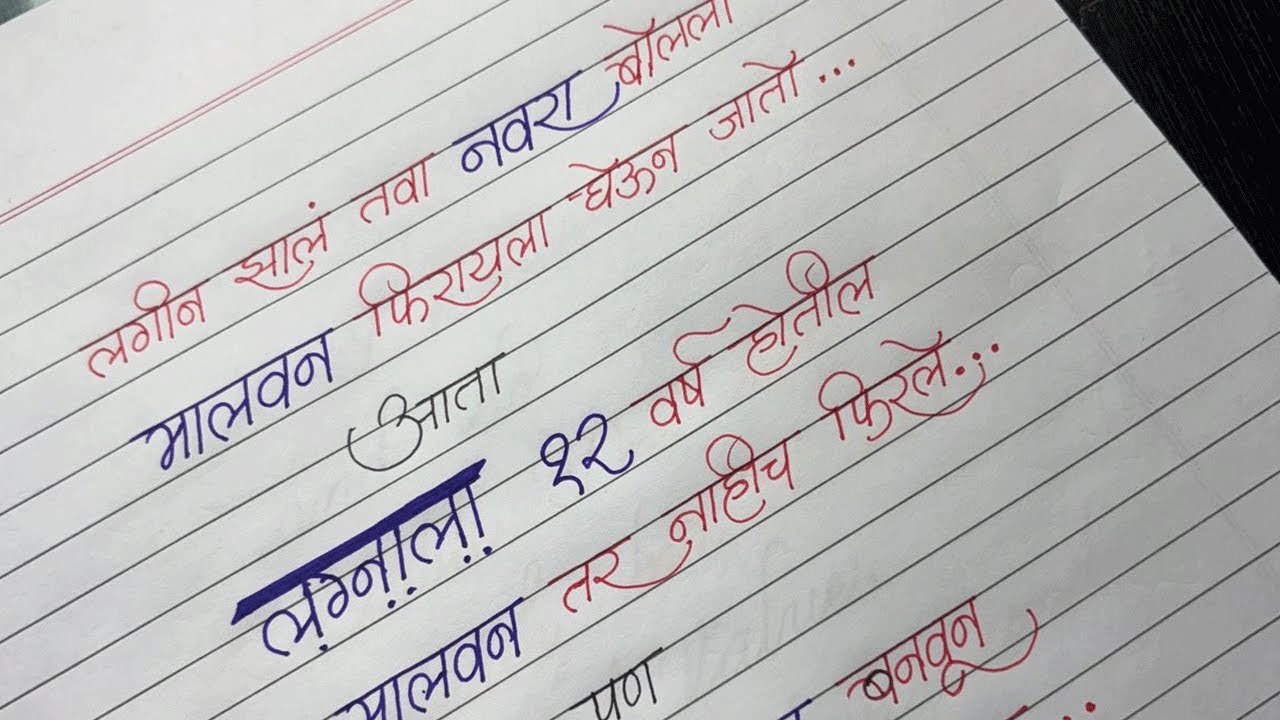 लगीन झालं तवा नवरा बोलला
मालवन फिरायला घेऊन जातो...
आता
लग्नाला १२ वर्ष होतील
मालवन तर नाहीच फिरले...
पण
बनवून